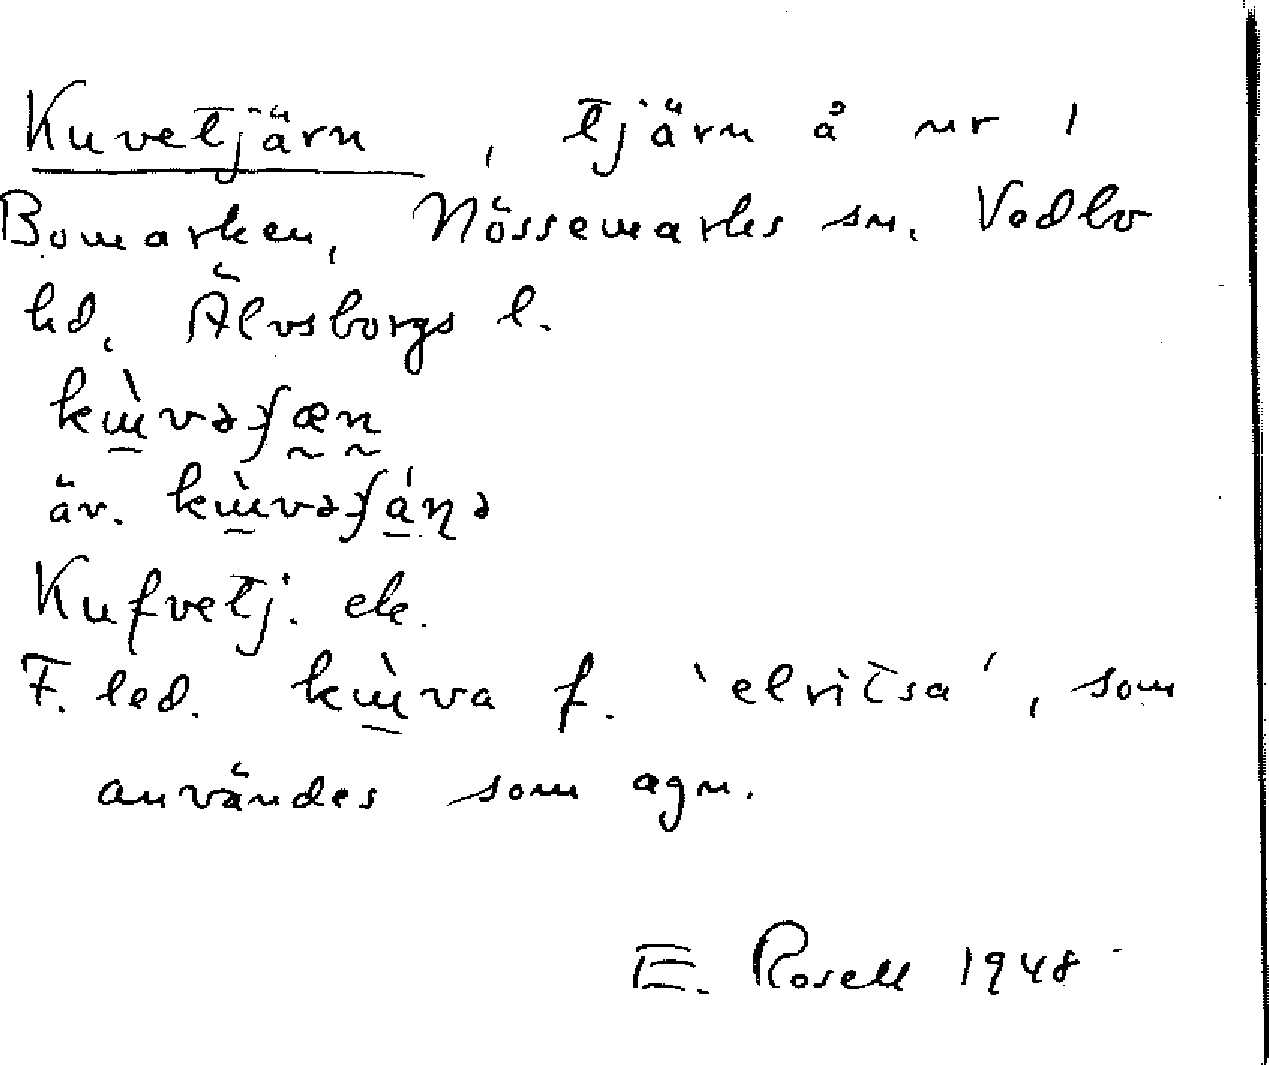 Kuvetjärn, tjärn å nr 1
Bomarken, Nössemarks sn. Vedbo
hd, Älvsborgs l.
äv.
Kufvetj. ek.
F. led. kɯ̀va f. 'elritsa', som
användes som agn.
E. Rosell 1948